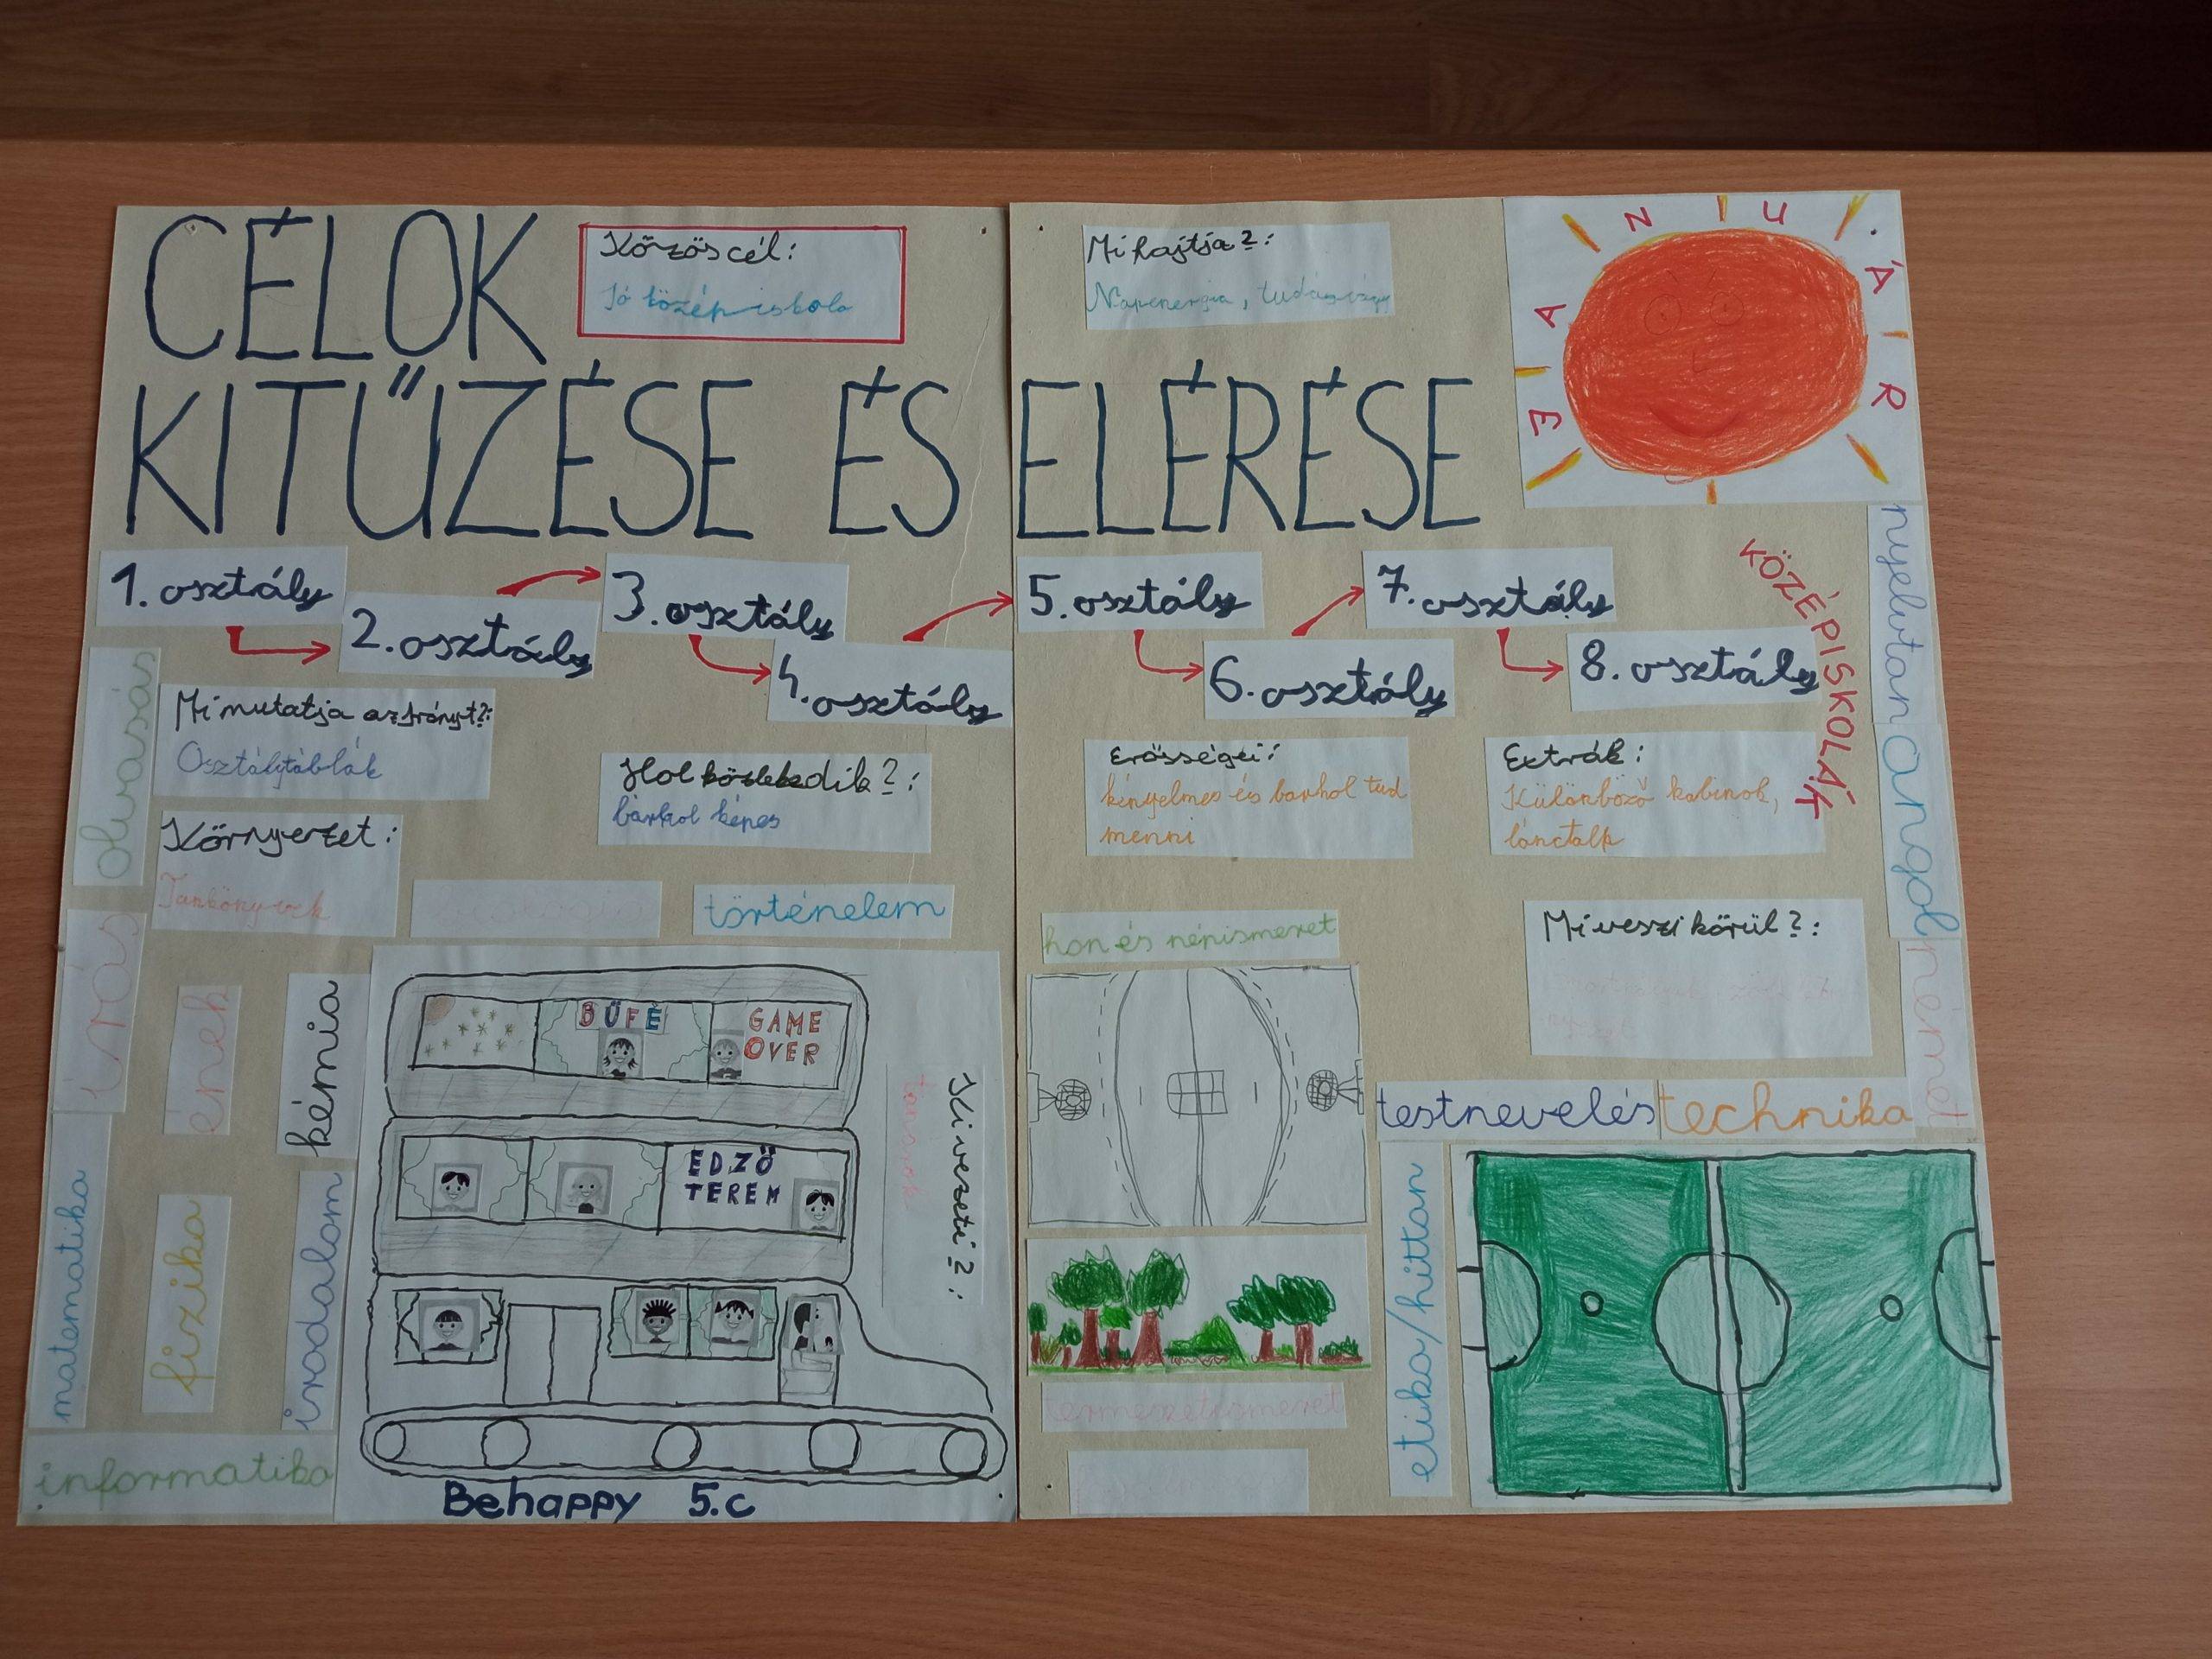 CÉLOK
KITŰZÉSE ÉS ELÉRÉSE
Közös cél:
Jó középiskola
Mi hajtja?:
Napenergia, tudásvágy
1. osztály
2. osztály
3. osztály
4. osztály
5. osztály
6. osztály
7. osztály
8. osztály
KÖZÉPISKOLÁK
Mi mutatja az irányt?:
Osztálytáblák
Hol közlekedik?:
bárhol képes
Erősségei:
kényelmes és barhol tud
menni
Extrák:
Különböző kabinok,
lánctalp
Környezet:
Tankönyvek
Mi veszi körül?:
történelem
hon és népismeret
olvasás
írás
ének
kémia
matematika
fizika
irodalom
informatika
BÜFÉ
GAME
OVER
EDZŐ
TEREM
Ki vezeti?:
tanárok
Behappy 5.c
nyelvtan
angol
német
testnevelés
technika
etika/hittan
természetismeret